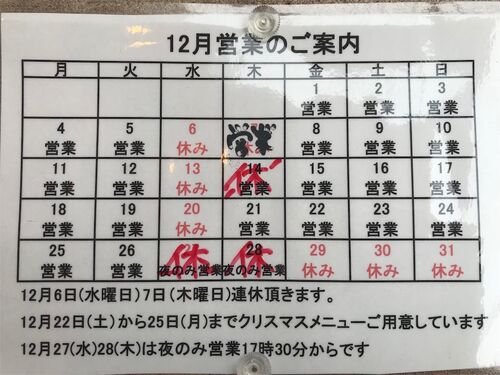 12月営業のご案内
月 火 水 木 金 土 日
1 2 3
営業 営業 営業
4 5 6 8 9 10
営業 営業 休み 営業 営業 営業 営業
11 12 13 14 15 16 17
営業 営業 休み 休 営業 営業 営業 営業
18 19 20 21 22 23 24
営業 営業 休み 営業 営業 営業 営業
25 26 休 休 28 29 30 31
営業 営業 夜のみ営業 夜のみ営業 休み 休み 休み
12月6日(水曜日)7日(木曜日)連休頂きます。
12月22日(土)から25日(月)までクリスマスメニューご用意しています
12月27(水)28(木)は夜のみ営業17時30分からです